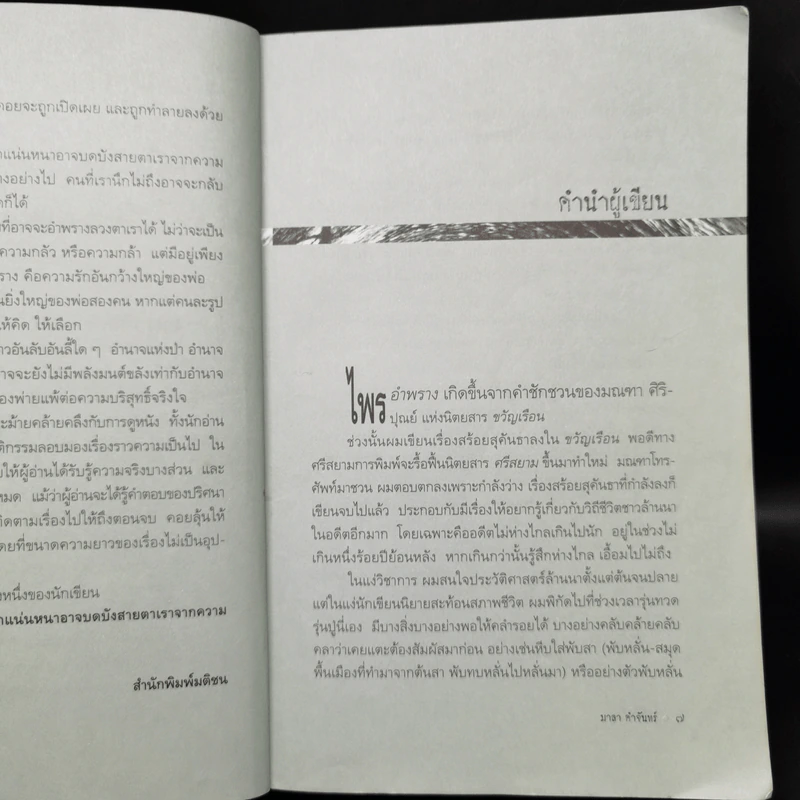 คอยจะถูกเปิดเผย และถูกทำลายลงด้วย
แน่นหนาอาจบดบังสายตาเราจากความ
างอย่างไป คนที่เรานึกไม่ถึงอาจจะกลับ
ก็ได้
ที่อาจจะอำพรางลวงตาเราได้ ไม่ว่าจะเป็น
ความกลัว หรือความกล้า แต่มีอยู่เพียง
ราง คือความรักอันกว้างใหญ่ของพ่อ
นยิ่งใหญ่ของพ่อสองคน หากแต่คนละรูป
ห้คิด ให้เลือก
าวอันลับอันลี้ใด ๆ อำนาจแห่งป่า อำนาจ
าจจะยังไม่มีพลังมนต์ขลังเท่ากับอำนาจ
องพ่ายแพ้ต่อความบริสุทธิ์จริงใจ
ะม้ายคล้ายคลึงกับการดูหนัง ทั้งนักอ่าน
ติกรรมลอบมองเรื่องราวความเป็นไป ใน
ยให้ผู้อ่านได้รับรู้ความจริงบางส่วน และ
หมด แม้ว่าผู้อ่านจะได้รู้คำตอบของปริศนา
ติดตามเรื่องไปให้ถึงตอนจบ คอยลุ้นให้
ดยที่ขนาดความยาวของเรื่องไม่เป็นอุป-
หนึ่งของนักเขียน
แน่นหนาอาจบดบังสายตาเราจากความ
สำนักพิมพ์มติชน
คำนำผู้เขียน
ไพรอำพราง เกิดขึ้นจากคำชักชวนของมณฑา ศิริ-
ปุณย์ แห่งนิตยสาร ขวัญเรือน
ช่วงนั้นผมเขียนเรื่องสร้อยสุคันธาลงใน ขวัญเรือน พอดีทาง
ศรีสยามการพิมพ์จะรื้อฟื้นนิตยสาร ศรีสยาม ขึ้นมาทำใหม่ มณฑาโทร-
ศัพท์มาชวน ผมตอบตกลงเพราะกำลังว่าง เรื่องสร้อยสุคันธาที่กำลังลงก็
เขียนจบไปแล้ว ประกอบกับมีเรื่องให้อยากรู้เกี่ยวกับวิถีชีวิตชาวล้านนา
ในอดีตอีกมาก โดยเฉพาะคืออดีตไม่ห่างไกลเกินไปนัก อยู่ในช่วงไม่
เกินหนึ่งร้อยปีย้อนหลัง หากเกินกว่านั้นรู้สึกห่างไกล เอื้อมไปไม่ถึง
ในแง่วิชาการ ผมสนใจประวัติศาสตร์ล้านนาตั้งแต่ต้นจนปลาย
แต่ในแง่นักเขียนนิยายสะท้อนสภาพชีวิต ผมพิกัดไปที่ช่วงเวลารุ่นทวด
รุ่นปู่นี่เอง มีบางสิ่งบางอย่างพอให้คลำรอยได้ บางอย่างคลับคล้ายคลับ
คลาว่าเคยแตะต้องสัมผัสมาก่อน อย่างเช่นหีบใส่พับสา (พับหลั่น-สมุด
พื้นเมืองที่ทำมาจากต้นสา พับทบหลั่นไปหลั่นมา) หรืออย่างตัวพับหลั่น
มาลา คำจันทร์ ๗